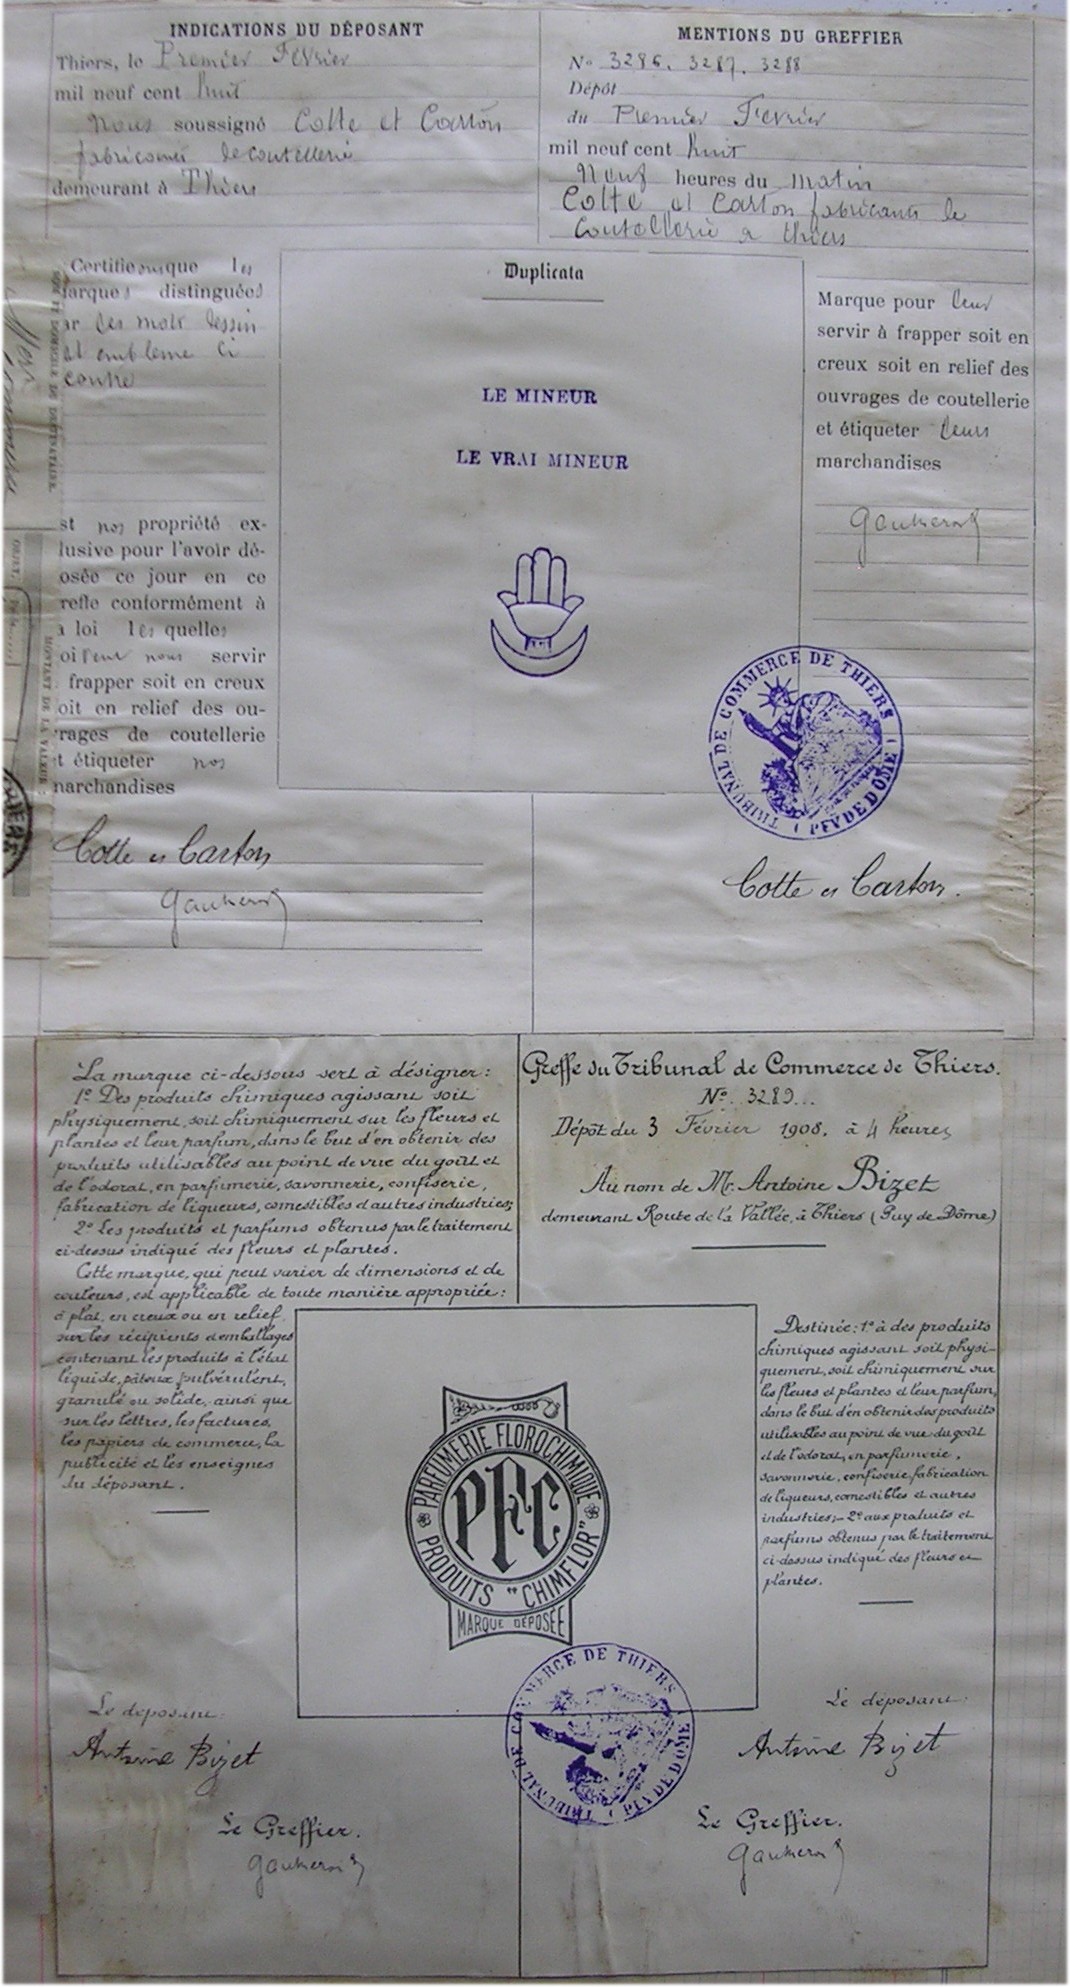 INDICATIONS DU DÉPOSANT
Thiers, le Premier Février
mil neuf cent huit
Nous soussigné Cotte et Carton
fabricants de coutellerie
demeurant à Thiers
MENTIONS DU GREFFIER
No 3286. 3287. 3288
Dépôt
du Premier Février
mil neuf cent huit
Neuf heures du matin
Cotte et Carton fabricants de
Coutellerie a thiers
Certifie que les
arques distinguées
ar les mots dessin
et embleme ci
contre
st nos propriété ex-
lusive pour l'avoir dé-
osée ce jour en ce
reffe conformément à
a loi les quelles
nous servir
frapper soit en creux
oit en relief des ou-
rages de coutellerie
t étiqueter nos
marchandises
Cotte et Carton
Duplicata
LE MINEUR
LE VRAI MINEUR
Marque pour leur
servir à frapper soit en
creux soit en relief des
ouvrages de coutellerie
et étiqueter leurs
marchandises
TRIBUNAL DE COMMERCE DE THIERS
(PUY DE DOME)
Cotte et Carton.
NOM ET DOMICILE DU DESTINATAIRE.
MONTANT DE LA VALEUR
La marque ci-dessous sert à désigner:
1º Des produits chimiques agissant soit
physiquement, soit chimiquement sur les fleurs et
plantes et leur parfum, dans le but d'en obtenir des
produits utilisables au point de vue du goût et
de l'odorat, en parfumerie, savonnerie, confiserie,
fabrication de liqueurs, comestibles et autres industries;
2º Les produits et parfums obtenus par le traitement
ci-dessus indiqué des fleurs et plantes.
Cette marque, qui peut varier de dimensions et de
couleurs, est applicable de toute manière appropriée:
à plat, en creux ou en relief,
sur les récipients et emballages
contenant les produits à l'état
liquide, pâteux, pulvérulent,
granulé ou solide, ainsi que
sur les lettres, les factures,
les papiers de commerce, la
publicité et les enseignes
du déposant.
Greffe du Tribunal de Commerce de Thiers.
No. 3289...
Dépôt du 3 Février 1908. à 4 heures
Au nom de Mr. Antoine Bizet
demeurant Route de la Vallée, à Thiers (Puy de Dôme)
PARFUMERIE FLOROCHIMIQUE
PFC
PRODUITS "CHIMFLOR"
MARQUE DÉPOSÉE
Destinée: 1º à des produits
chimiques agissant soit physi-
quement, soit chimiquement sur
les fleurs et plantes et leur parfum,
dans le but d'en obtenir des produits
utilisables au point de vue du goût
et de l'odorat, en parfumerie,
savonnerie, confiserie, fabrication
de liqueurs, comestibles et autres
industries;- 2º aux produits et
parfums obtenus par le traitement
ci-dessus indiqué des fleurs et
plantes.
TRIBUNAL DE COMMERCE DE THIERS
(PUY DE DOME)
Le déposant:
Antoine Bizet
Le Greffier.
Le déposant:
Antoine Bizet
Le Greffier.